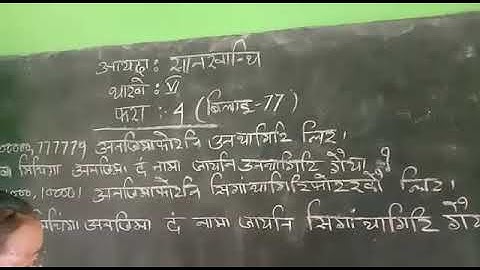 आयदा : सानखान्थि
थाखो : VI
फरा :- 4 (बिलाइ-77)
777779 अनजिमाफोरनि उनथागिरि लिर।
अनजिमा दं नामा जायनि उनथागिरि गैया?
10000। अनजिमाफोरनि सिगांथागिरिफोरखौ लिर।
अनजिमा दं नामा जायनि सिगांथागिरि